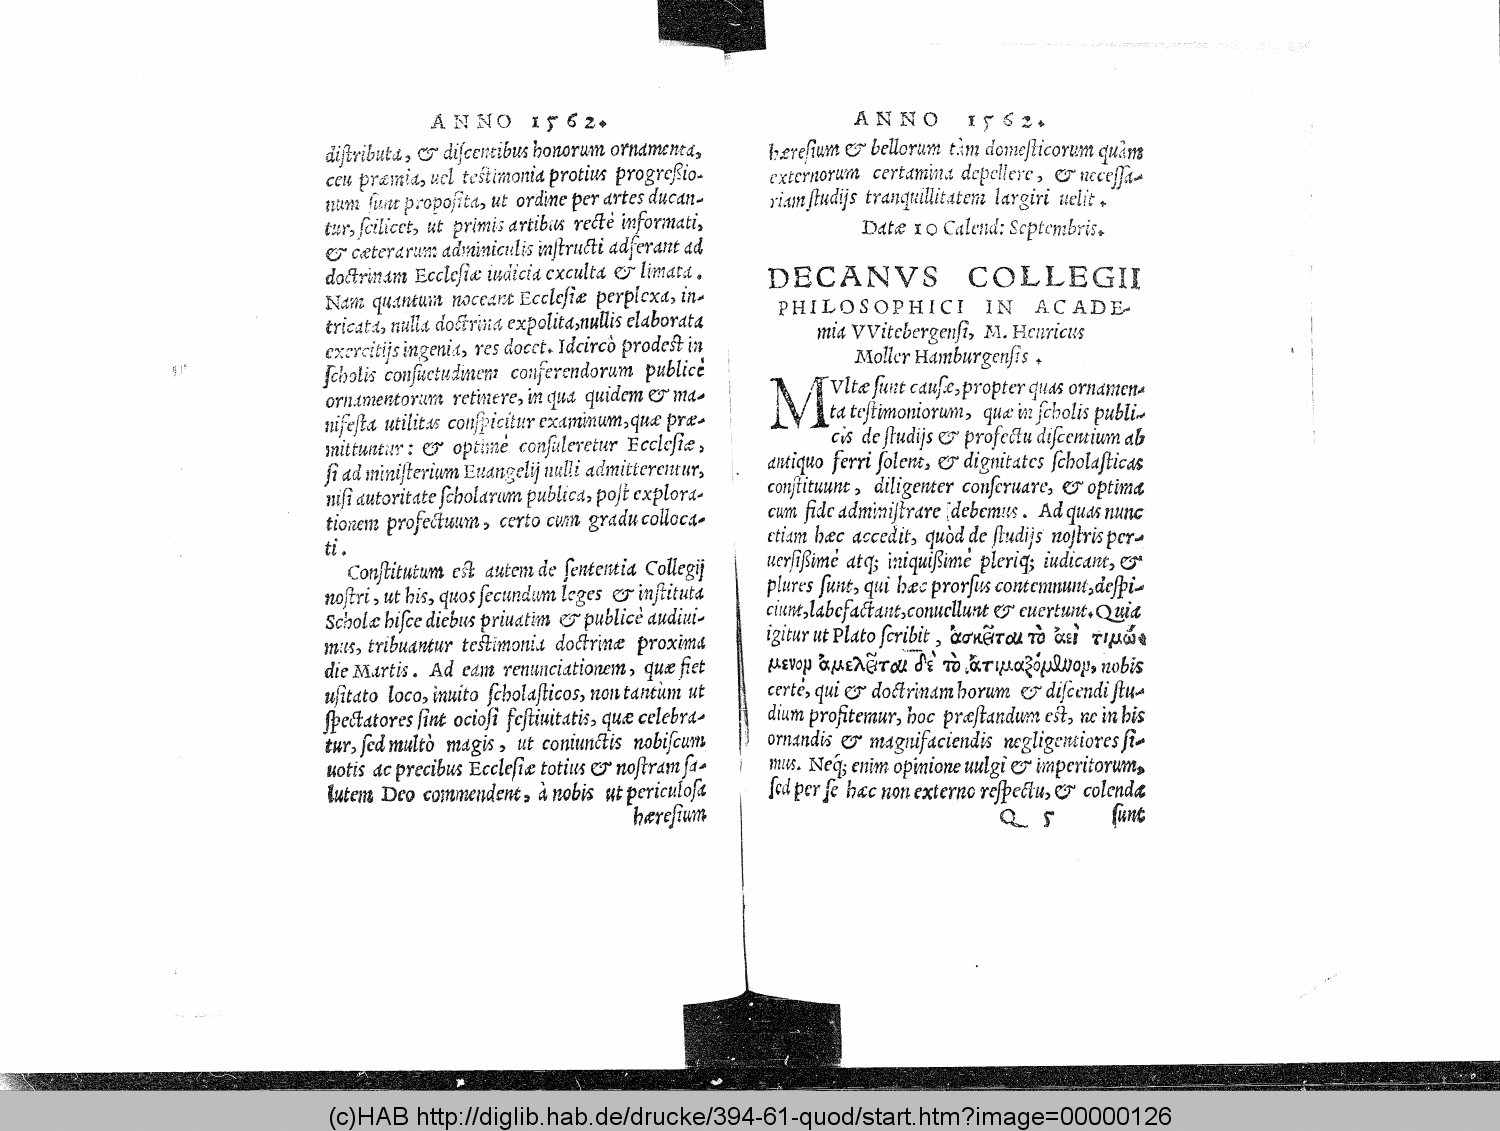 ANNO 1562.
distributa, & discentibus honorum ornamenta,
ceu præmia, uel testimonia protius progreßio-
num sunt proposita, ut ordine per artes ducan-
tur, scilicet, ut primis artibus rectè informati,
& cæterarum adminiculis instructi adferant ad
doctrinam Ecclesiæ iudicia exculta & limata.
Nam quantum noceant Ecclesiæ perplexa, in-
tricata, nulla doctrina expolita, nullis elaborata
exercitijs ingenia, res docet. Idcircò prodest in
scholis consuetudinem conferendorum publicè
ornamentorum retinere, in qua quidem & ma-
nifesta utilitas conspicitur examinum, quæ præ-
mittuntur: & optimè consuleretur Ecclesiæ,
si ad ministerium Euangelij nulli admitterentur,
nisi autoritate scholarum publica, post explora-
tionem profectuum, certo cum gradu colloca-
ti.
Constitutum est autem de sententia Collegij
nostri, ut his, quos secundum leges & instituta
Scholæ hisce diebus priuatim & publicè audiui-
mus, tribuantur testimonia doctrinæ proxima
die Martis. Ad eam renunciationem, quæ fiet
usitato loco, inuito scholasticos, non tantùm ut
spectatores sint ociosi festiuitatis, quæ celebra-
tur, sed multò magis, ut coniunctis nobiscum
uotis ac precibus Ecclesiæ totius & nostram sa-
lutem Deo commendent, à nobis ut periculosa
hæresium
ANNO 1562.
hæresium & bellorum tàm domesticorum quàm
externorum certamina depellere, & necessa-
riam studijs tranquillitatem largiri uelit.
Datæ 10 Calend: Septembris.
DECANVS COLLEGII
PHILOSOPHICI IN ACADE-
mia VVitebergensi, M. Henricus
Moller Hamburgensis.
MVltæ sunt causæ, propter quas ornamen-
ta testimoniorum, quæ in scholis publi-
cis de studijs & profectu discentium ab
antiquo ferri solent, & dignitates scholasticas
constituunt, diligenter conseruare, & optima
cum fide administrare debemus. Ad quas nunc
etiam hæc accedit, quòd de studijs nostris per-
uersißimè atq; iniquißimè pleriq; iudicant, &
plures sunt, qui hæc prorsus contemnunt, despi-
ciunt, labefactant, conuellunt & euertunt. Quia
igitur ut Plato scribit, ἀσκεῖται τὸ ἀεὶ τιμώ-
μενον ἀμελεῖται δὲ τὸ ἀτιμαζόμενον, nobis
certè, qui & doctrinam horum & discendi stu-
dium profitemur, hoc præstandum est, ne in his
ornandis & magnifaciendis negligentiores si-
mus. Neq; enim opinione uulgi & imperitorum,
sed per se hæc non externo respectu, & colenda
Q 5 sunt
(c)HAB http://diglib.hab.de/drucke/394-61-quod/start.htm?image=00000126